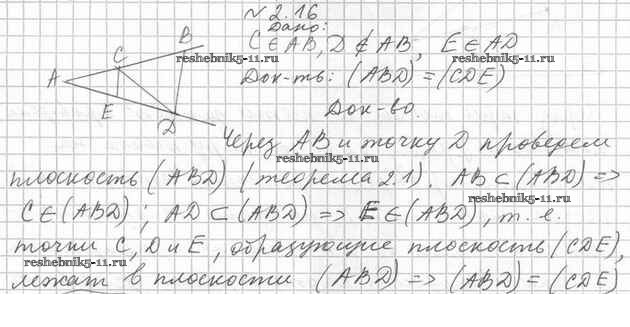 №2.16
Дано:
C ∈ AB, D ∉ AB, E ∈ AD
Док-ть: (ABD) = (CDE)
Док-во.
Через AB и точку D проведем
плоскость (ABD) (теорема 2.1). AB ⊂ (ABD) =>
C ∈ (ABD); AD ⊂ (ABD) => E ∈ (ABD), т. е.
точки C, D и E, образующие плоскость (CDE),
лежат в плоскости (ABD) => (ABD) = (CDE)
A
B
C
E
D
reshebnik5-11.ru
reshebnik5-11.ru
reshebnik5-11.ru
reshebnik5-11.ru
reshebnik5-11.ru
reshebnik5-11.ru